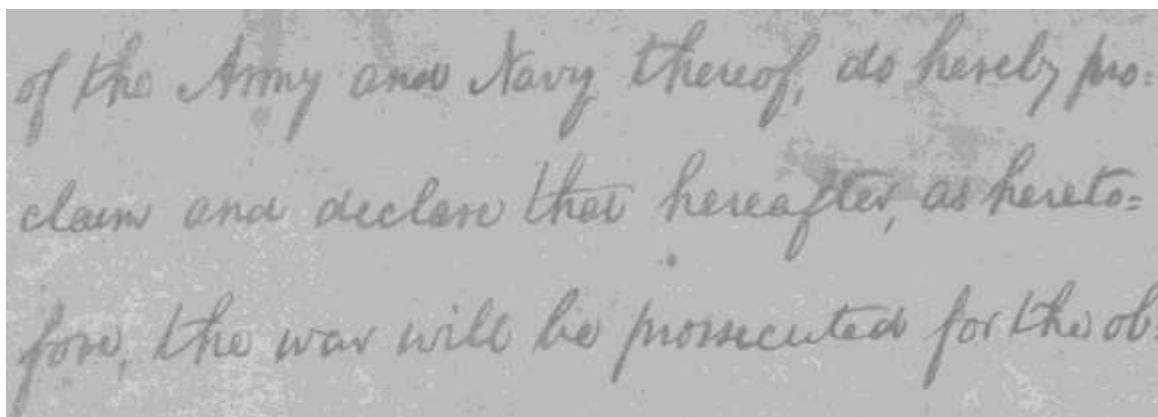 of the Army and Navy thereof, do hereby pro=
claim and declare that hereafter, as hereto=
fore, the war will be prossecuted for the ob=